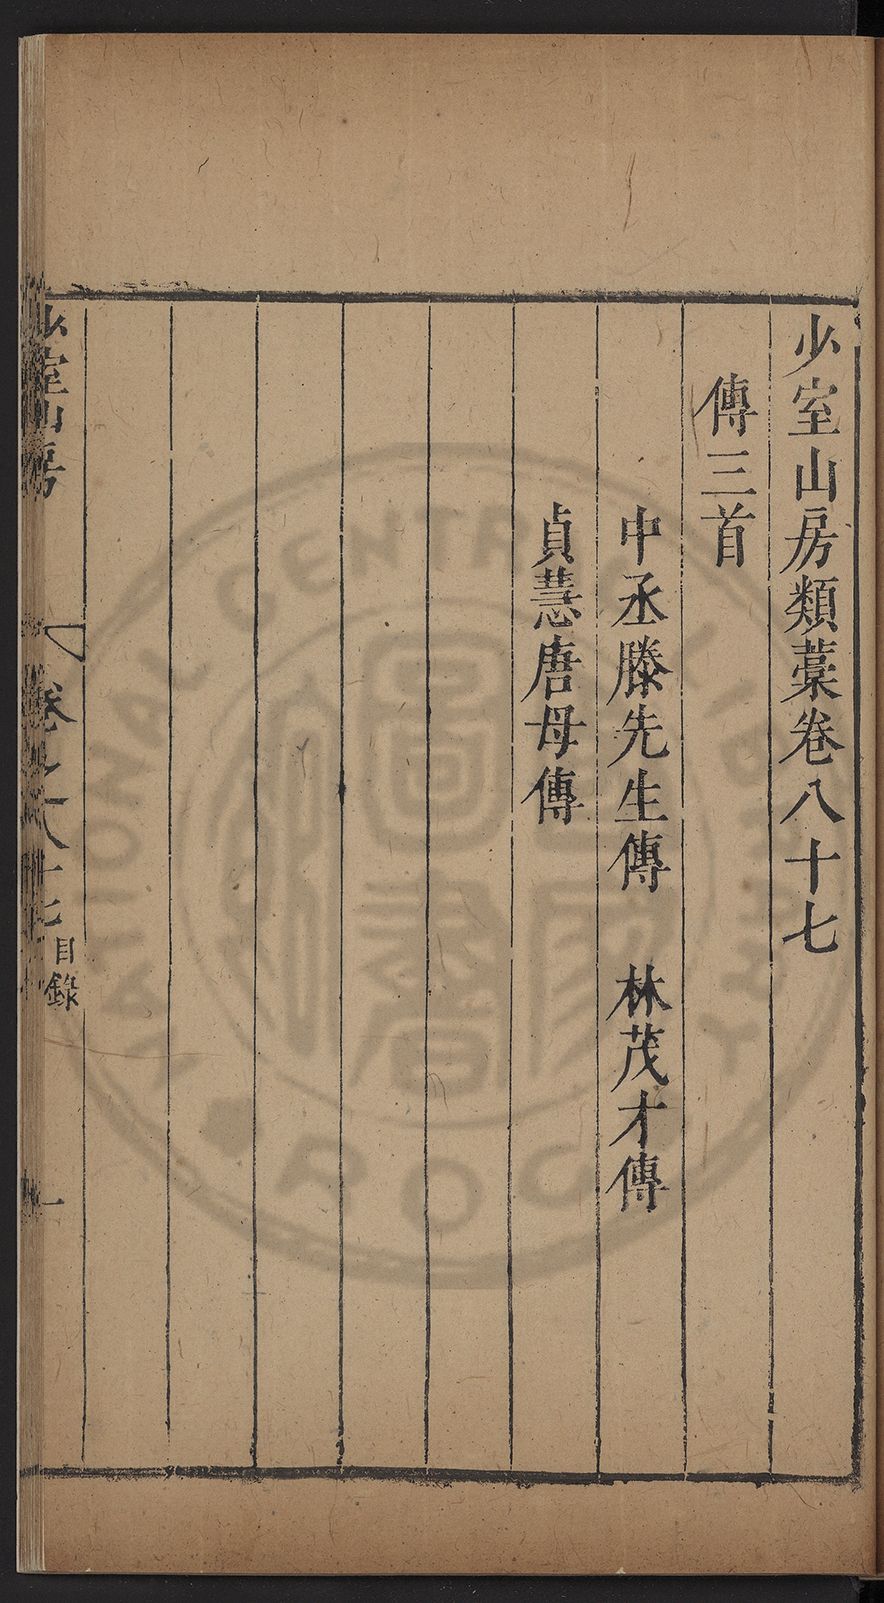 少室山房類藁卷八十七
傳三首
中丞滕先生傳　林茂才傳
貞慧唐母傳
少室山房　卷之八十七　目錄　一